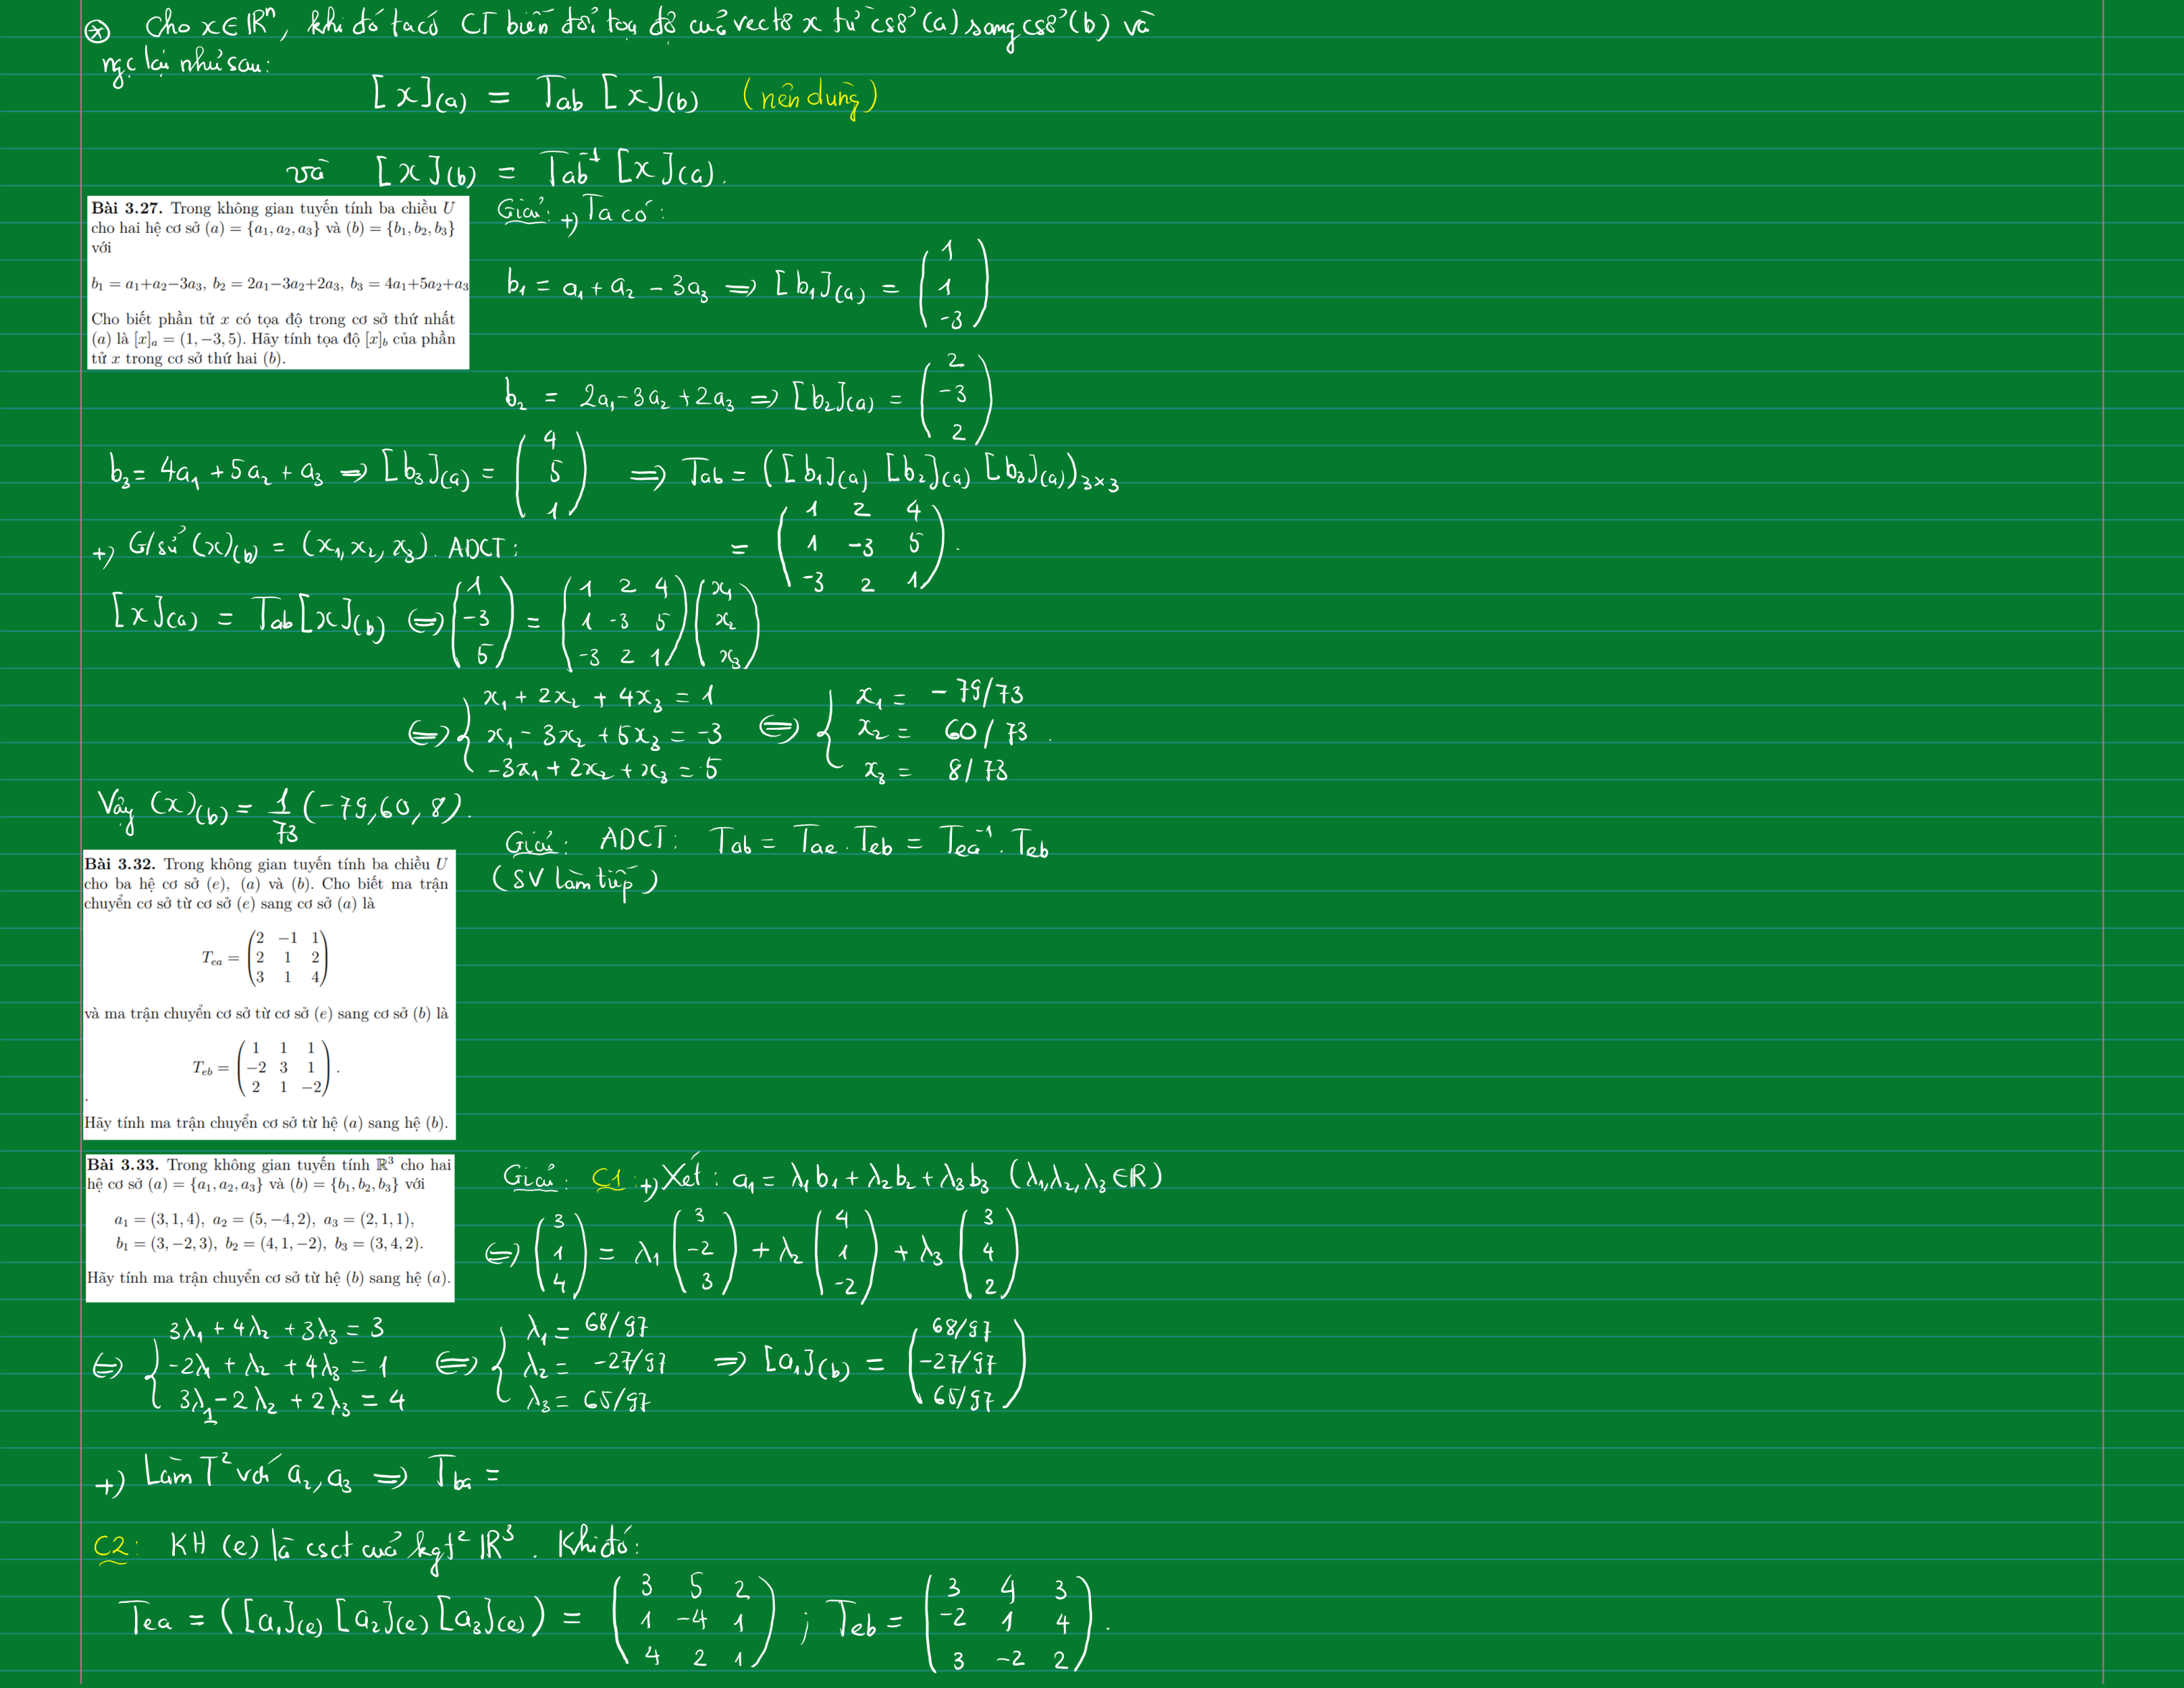 ⊛ Cho x∈ℝⁿ, khi đó ta có CT biến đổi toạ độ của vectơ x từ csở (a) sang csở (b) và
ngc lại như sau:
[x](a) = Tab [x](b) (nên dùng)
và [x](b) = Tab⁻¹ [x](a).
Bài 3.27. Trong không gian tuyến tính ba chiều U
cho hai hệ cơ sở (a) = {a₁, a₂, a₃} và (b) = {b₁, b₂, b₃}
với
b₁ = a₁+a₂−3a₃, b₂ = 2a₁−3a₂+2a₃, b₃ = 4a₁+5a₂+a₃
Cho biết phần tử x có tọa độ trong cơ sở thứ nhất
(a) là [x]ₐ = (1, −3, 5). Hãy tính tọa độ [x]_b của phần
tử x trong cơ sở thứ hai (b).
Giải: +) Ta có:
b₁ = a₁ + a₂ - 3a₃ => [b₁](a) = (1 1 -3)
b₂ = 2a₁ - 3a₂ + 2a₃ => [b₂](a) = (2 -3 2)
b₃ = 4a₁ + 5a₂ + a₃ => [b₃](a) = (4 5 1) => Tab = ([b₁](a) [b₂](a) [b₃](a))₃ₓ₃
= (1 2 4
1 -3 5
-3 2 1).
+) G/sử (x)(b) = (x₁, x₂, x₃). ADCT:
[x](a) = Tab [x](b) <=> (1 -3 5) = (1 2 4
1 -3 5
-3 2 1) (x₁ x₂ x₃)
<=> { x₁ + 2x₂ + 4x₃ = 1
x₁ - 3x₂ + 5x₃ = -3
-3x₁ + 2x₂ + x₃ = 5
<=> { x₁ = -79/73
x₂ = 60/73.
x₃ = 8/73
Vậy (x)(b) = 1/73 (-79, 60, 8).
Bài 3.32. Trong không gian tuyến tính ba chiều U
cho ba hệ cơ sở (e), (a) và (b). Cho biết ma trận
chuyển cơ sở từ cơ sở (e) sang cơ sở (a) là
Tea = (2 −1 1
2 1 2
3 1 4)
và ma trận chuyển cơ sở từ cơ sở (e) sang cơ sở (b) là
Teb = (1 1 1
−2 3 1
2 1 −2).
.
Hãy tính ma trận chuyển cơ sở từ hệ (a) sang hệ (b).
Giải: ADCT: Tab = Tae . Teb = Tea⁻¹ . Teb
(SV làm tiếp)
Bài 3.33. Trong không gian tuyến tính ℝ³ cho hai
hệ cơ sở (a) = {a₁, a₂, a₃} và (b) = {b₁, b₂, b₃} với
a₁ = (3, 1, 4), a₂ = (5, −4, 2), a₃ = (2, 1, 1),
b₁ = (3, −2, 3), b₂ = (4, 1, −2), b₃ = (3, 4, 2).
Hãy tính ma trận chuyển cơ sở từ hệ (b) sang hệ (a).
Giải: C1: +) Xét: a₁ = λ₁b₁ + λ₂b₂ + λ₃b₃ (λ₁, λ₂, λ₃ ∈ ℝ)
<=> (3 1 4) = λ₁ (3 -2 3) + λ₂ (4 1 -2) + λ₃ (3 4 2)
<=> { 3λ₁ + 4λ₂ + 3λ₃ = 3
-2λ₁ + λ₂ + 4λ₃ = 1
3λ₁ - 2λ₂ + 2λ₃ = 4
<=> { λ₁ = 68/97
λ₂ = -27/97
λ₃ = 65/97
=> [a₁](b) = (68/97 -27/97 65/97)
+) Làm T² với a₂, a₃ => Tba =
C2: KH (e) là csct của kgt² ℝ³. Khi đó:
Tea = ([a₁](e) [a₂](e) [a₃](e)) = (3 5 2
1 -4 1
4 2 1) ; Teb = (3 4 3
-2 1 4
3 -2 2).